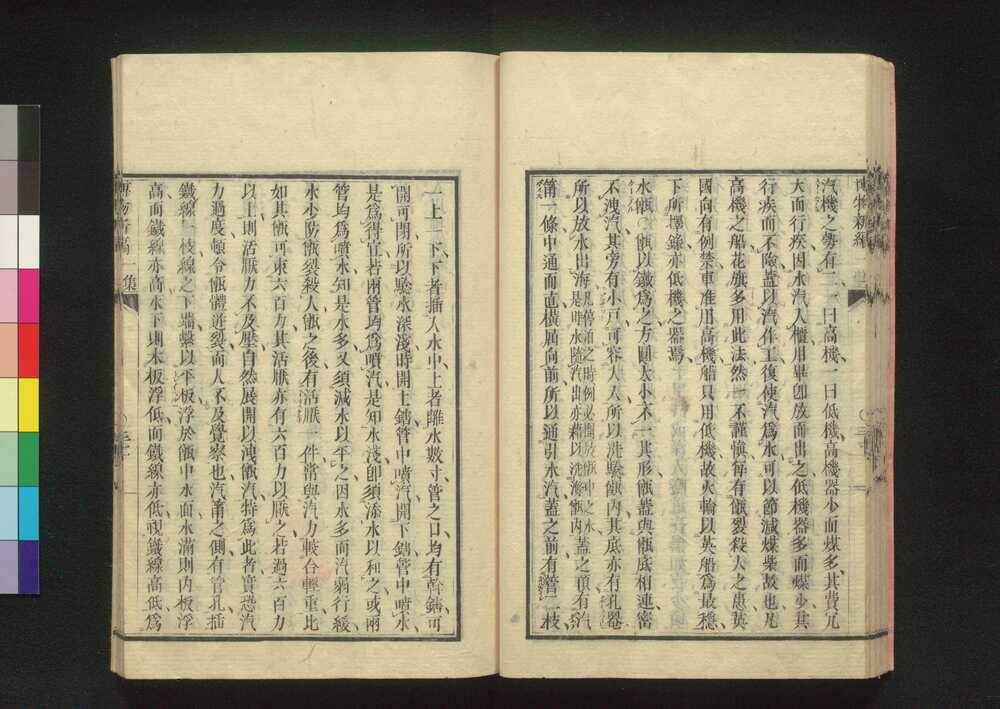 博物新編
汽機之勢有二一曰高機一曰低機高機器少而煤多其費冗
大而行疾因水汽入櫃用畢卽放而出之低機器多而煤少其
行疾而不險蓋以汽作工復使汽爲水可以節減煤柴故也凡
高機之船花旗多用此法然 不謹愼每有甑裂殺人之患英
國向有例禁車准用高機船只用低機故火輪以英船爲最穩
下所擇錄亦低機之器焉
水甑 甑以鐵爲之方圓大小不一其形甑蓋與甑底相連密
不洩汽其旁有小戸可容人入所以洗驗甑內其底亦有孔罨
所以放水出海 蓋之頂有汽
筩一條中通而直橫屆向前所以通引水汽蓋之前有管二枝
一上一下下者插入水中上者離水數寸管之口均有幹錥可
開可閉所以驗水深淺時開上錥管中噴汽開下錥管中噴水
是爲得宜若兩管均爲噴汽是知水淺卽須添水以和之或兩
管均爲噴水知是水多又須減水以平之因水多而汽弱行緩
水少防甑裂殺人甑之後有活厭一件常與汽力較合輕重比
如其甑可束六百力其活厭亦有六百力以厭之若過六百力
以上則活厭力不及壓自然展開以洩甑汽特爲此者實恐汽
力過度頓令甑體迸裂而人不及覺察也汽筩之側有管孔插
鐵線一枝線之下端繫以平板浮於甑中水面水滿則內板浮
高而鐵線亦高水下則木板浮低而鐵線亦低視鐵線高低爲